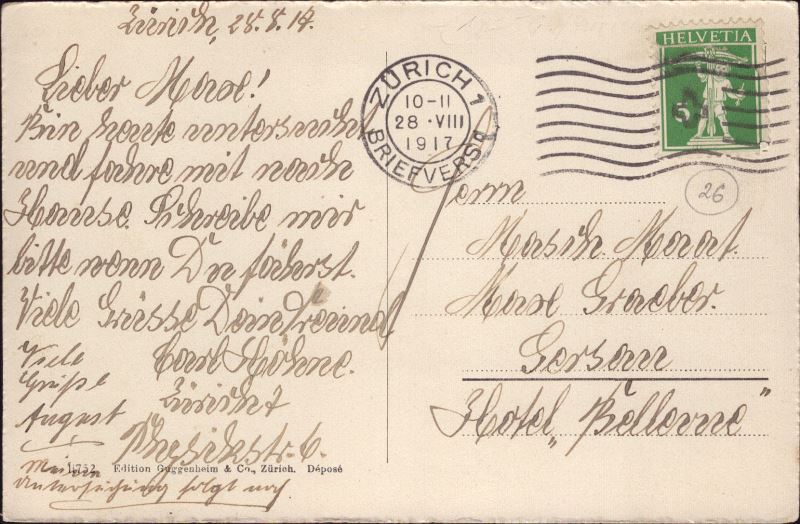 Zürich, 28.8.17.
Lieber Max!
Bin heute untersucht
und fahre mit nach
Hause. Schreibe mir
bitte wenn Du fährst.
Viele Grüsse Dein Freund
Carl Höhne.
Zürich 7
Physikstr. 6.
Viele
Grüße
August
Meine
Untersuchung folgt noch
11752 Edition Guggenheim & Co., Zürich. Déposé
ZÜRICH 1
10-11
28·VIII
1917
BRIEFVERSD.
HELVETIA
26
Herrn
Masch Maat.
Max Graeber.
Gersau
Hotel „Bellevue"